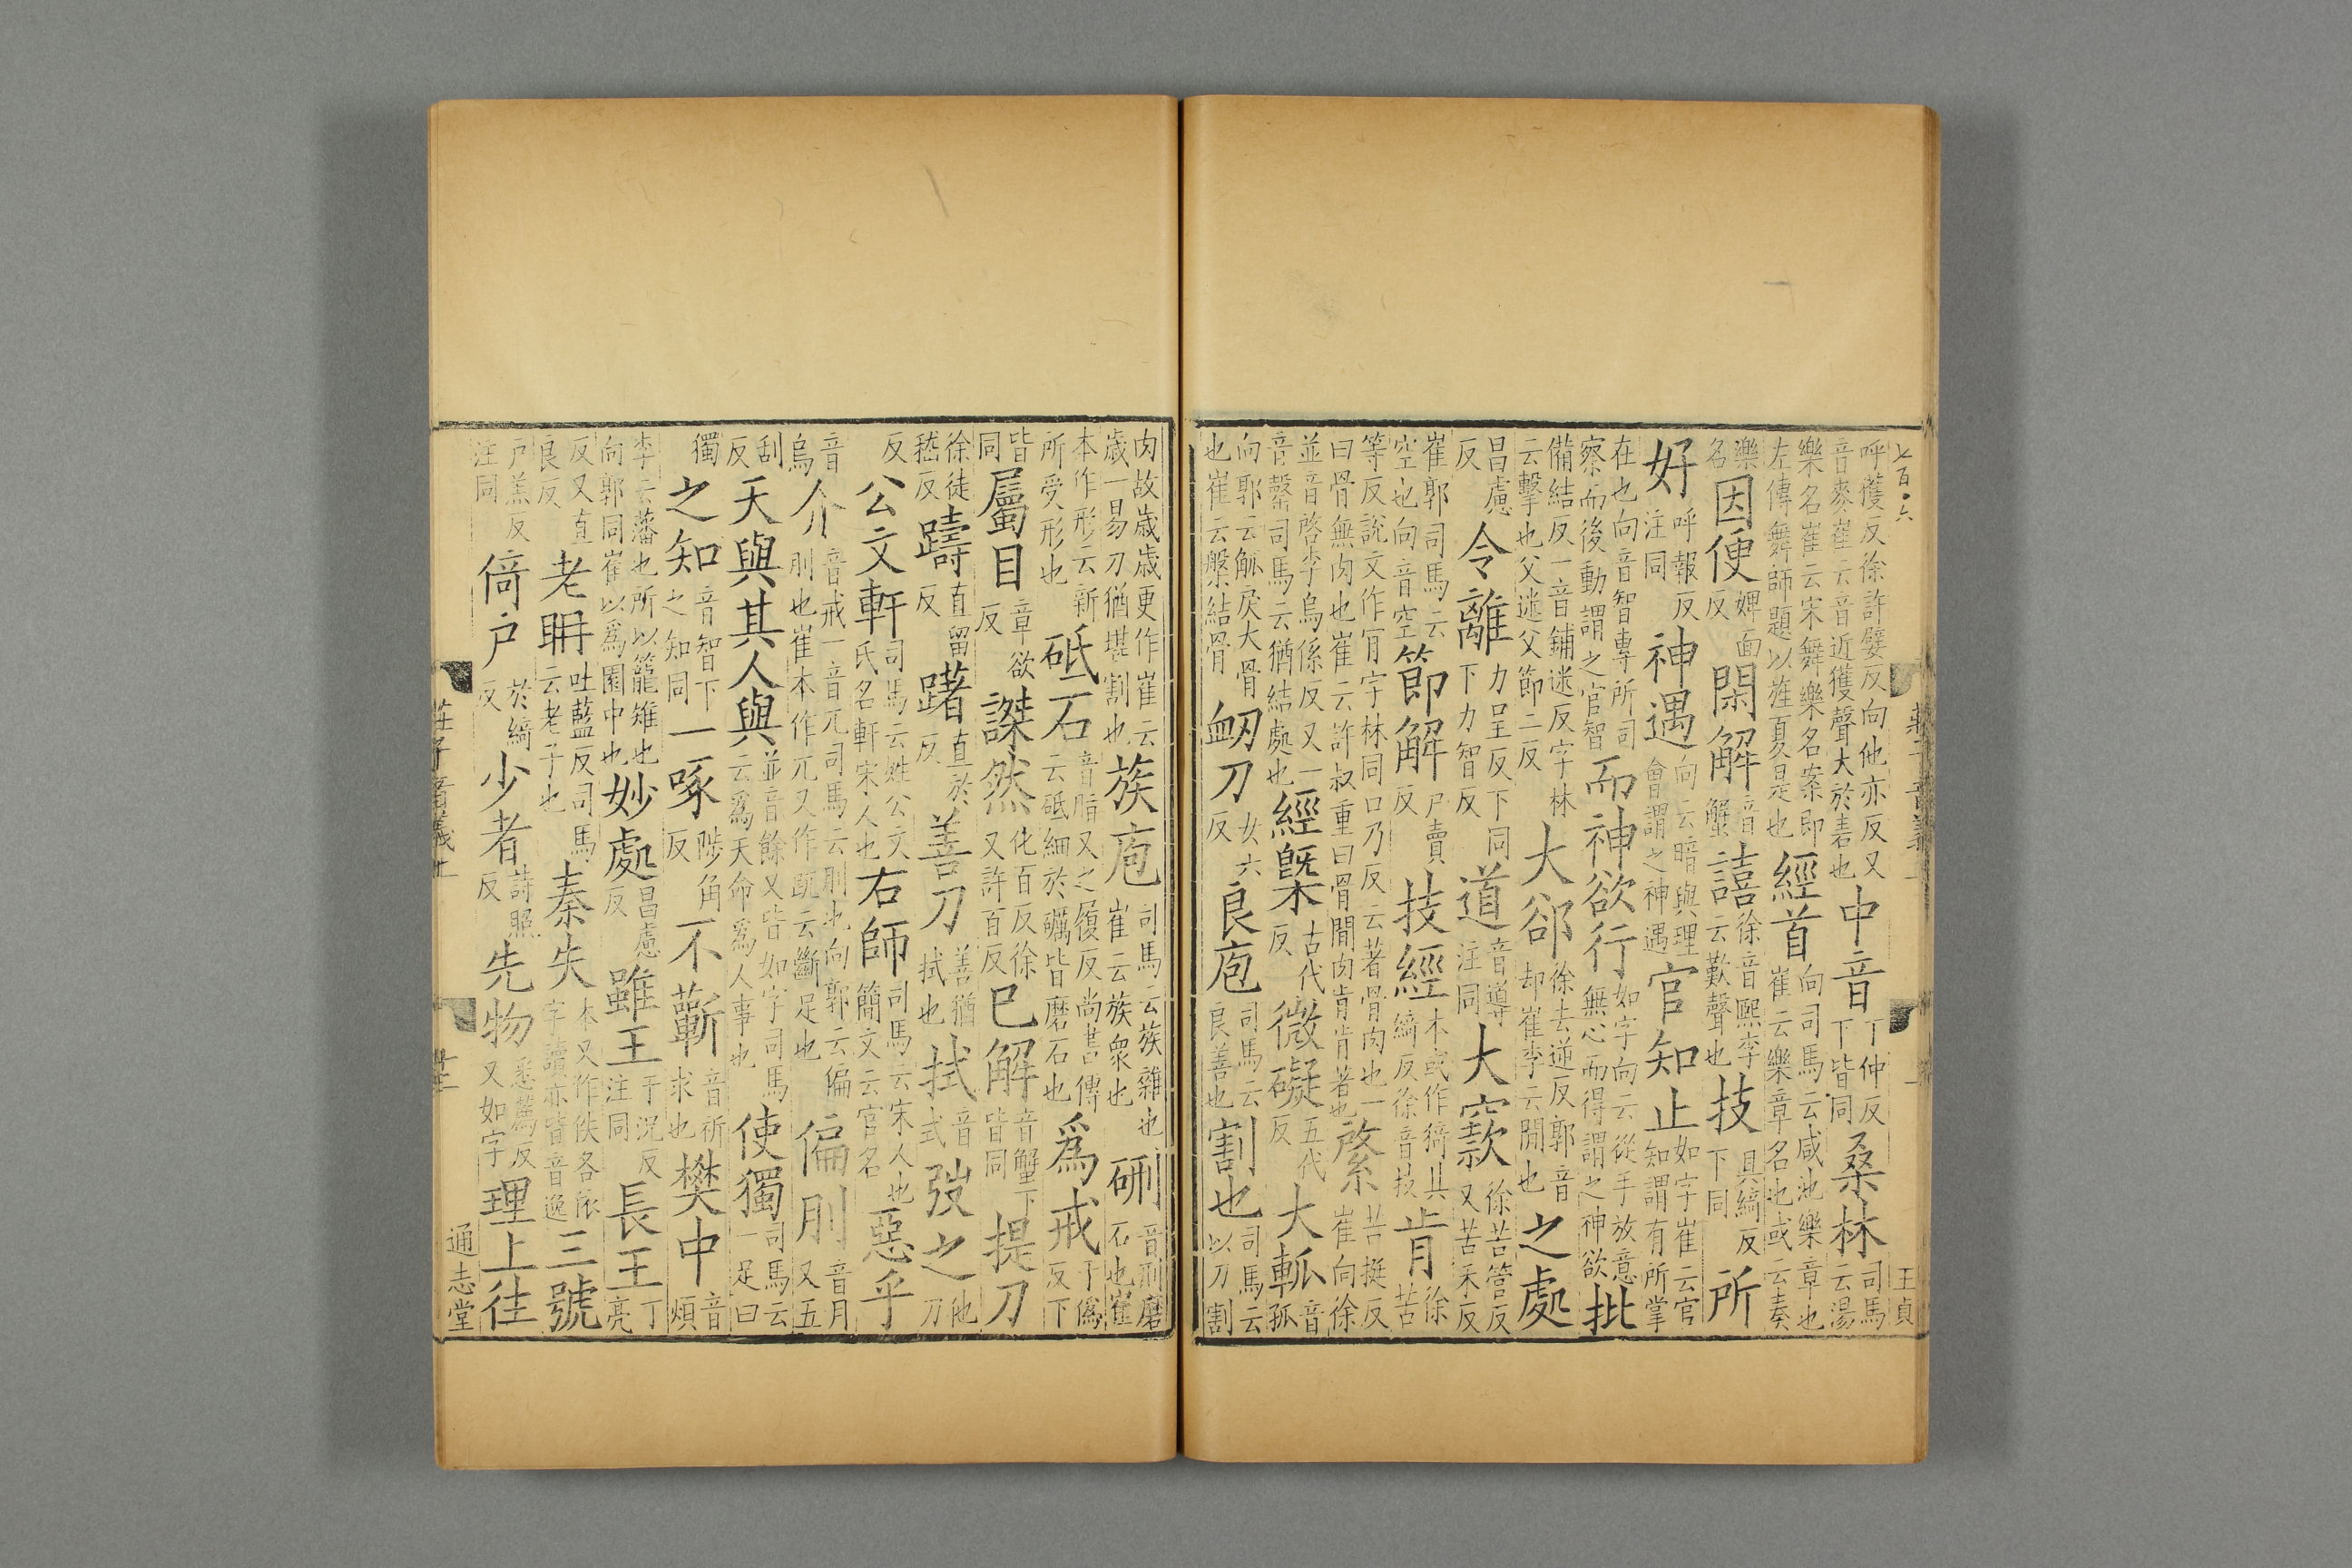 七百·六 莊子音義一 王貞
呼獲反徐許嬖反向他亦反又音麥崔云音近獲聲大於砉也中音丁仲反下皆同桑林司馬云湯
樂名崔云宋舞樂名案即左傳舞師題以旌夏是也經首向司馬云咸池樂章也崔云樂章名也或云奏
樂名因便婢面反閑解音蟹譆徐音熙李云歎聲也技具綺反下同所
好呼報反注同神遇向云暗與理會謂之神遇官知止如字崔云官知謂有所掌
在也向音智專所司察而後動謂之官智而神欲行如字向云從手放意無心而得謂之神欲批
備結反一音鋪迷反字林云擊也父迷父節二反大郤徐去逆反郭音却崔李云閒也之處
昌慮反令離力呈反下同下力智反道音導注同大窾徐苦管反又苦禾反
崔郭司馬云空也向音空節解戶賣反技經本或作猗其綺反徐音技肯徐苦
等反說文作肎字林同口乃反云著骨肉也一曰骨無肉也崔云許叔重曰骨閒肉肯肯著也綮苦挺反崔向徐
並音啓李烏係反又一音罄司馬云猶結處也經槩古代反微礙五代反大軱音孤
向郭云觚戾大骨也崔云槃結骨衂刀女六反良庖司馬云良善也割也司馬云以刀割
肉故歲歲更作崔云歲一易刀猶堪割也族庖司馬云族雜也崔云族衆也硎音刑磨石也崔
本作形云新所受形也砥石音脂又之履反尚書傳云砥細於礪皆磨石也爲戒于僞反下
皆同屬目章欲反謋然化百反徐又許百反已解音蟹下皆同提刀
徐徒嵇反躊直留反躇直於反善刀善猶拭也拭音式弢之他刀
反公文軒司馬云姓公文氏名軒宋人也右師司馬云宋人也簡文云官名惡乎
音烏介音戒一音兀司馬云刖也向郭云偏刖也崔本作兀又作趴云斷足也偏刖音月又五
刮反天與其人與並音餘又皆如字司馬云爲天命爲人事也使獨司馬云一足曰
獨之知音智下之知同一啄陟角反不蘄音祈求也樊中音煩
李云藩也所以籠雉也向郭同崔以爲園中也妙處昌慮反雖王于況反注同長王丁亮
反又直良反老耼吐藍反司馬云老子也秦失本又作佚各依字讀亦皆音逸三號
戶羔反注同倚戶於綺反少者詩照反先物悉薦反又如字理上往
莊子音義上 通志堂